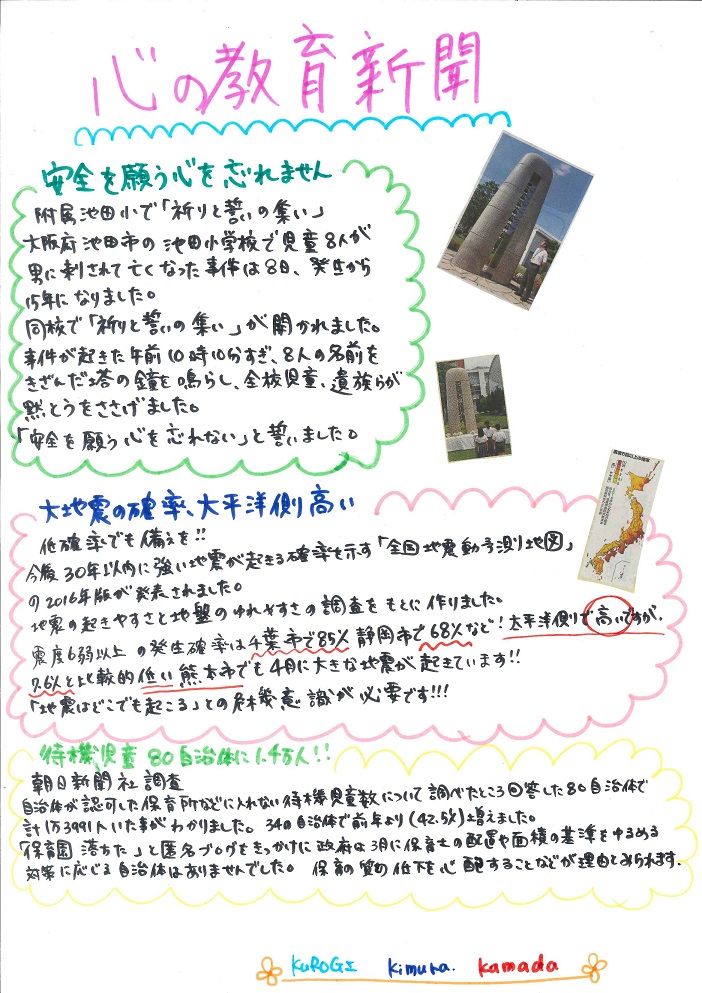 心の教育新聞
安全を願う心を忘れません
附属池田小で「祈りと誓いの集い」
大阪府池田市の池田小学校で児童8人が
男に刺されて亡くなった事件は8日、発生から
15年になりました。
同校で「祈りと誓いの集い」が開かれました。
事件が起きた午前10時10分すぎ、8人の名前を
きざんだ塔の鐘を鳴らし、全校児童、遺族らが
黙とうをささげました。
「安全を願う心を忘れない」と誓いました。
大地震の確率、太平洋側高い
低確率でも備えを!!
今後30年以内に強い地震が起きる確率を示す「全国地震動予測地図」
の2016年版が発表されました。
地震の起きやすさと地盤のゆれやすさの調査をもとに作りました。
震度6弱以上の発生確率は千葉市で85% 静岡市で68%など!太平洋側で高いですが、
7.6%と比較的低い熊本市でも4月に大きな地震が起きています!!
「地震はどこでも起こる」との危機意識が必要です!!!
待機児童80自治体に1.4万人!!
朝日新聞社調査
自治体が認可した保育所などに入れない待機児童数について調べたところ回答した80自治体で
計1万3991人いた事がわかりました。34の自治体で前年より(42.5%)増えました。
「保育園落ちた」と匿名ブログをきっかけに政府は3月に保育士の配置や面積の基準をゆるめる
対策に応じる自治体はありませんでした。保育の質の低下を心配することなどが理由とみられます.
KUROGI kimura. kamada